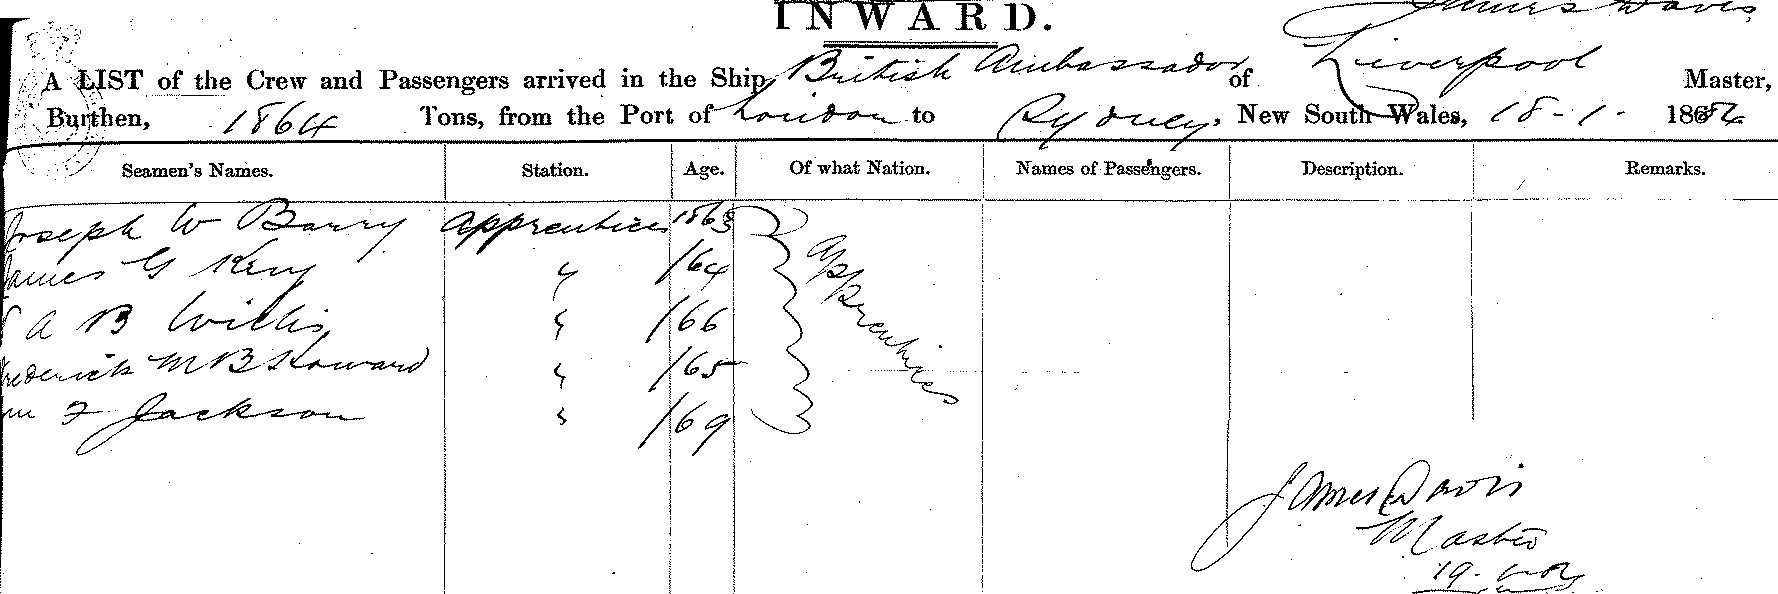 INWARD.
James Davis
A LIST of the Crew and Passengers arrived in the Ship British Ambassador of Liverpool Master,
Burthen, 1864 Tons, from the Port of London to Sydney, New South Wales, 18-1- 186
Seamen's Names. Station. Age. Of what Nation. Names of Passengers. Description. Remarks.
Joseph W Barry apprentices 1863 apprentices
James G " /64
A B Willis " /66
Frederick M B Howard " /65
F Jackson " /69
James Davis
Master
19.